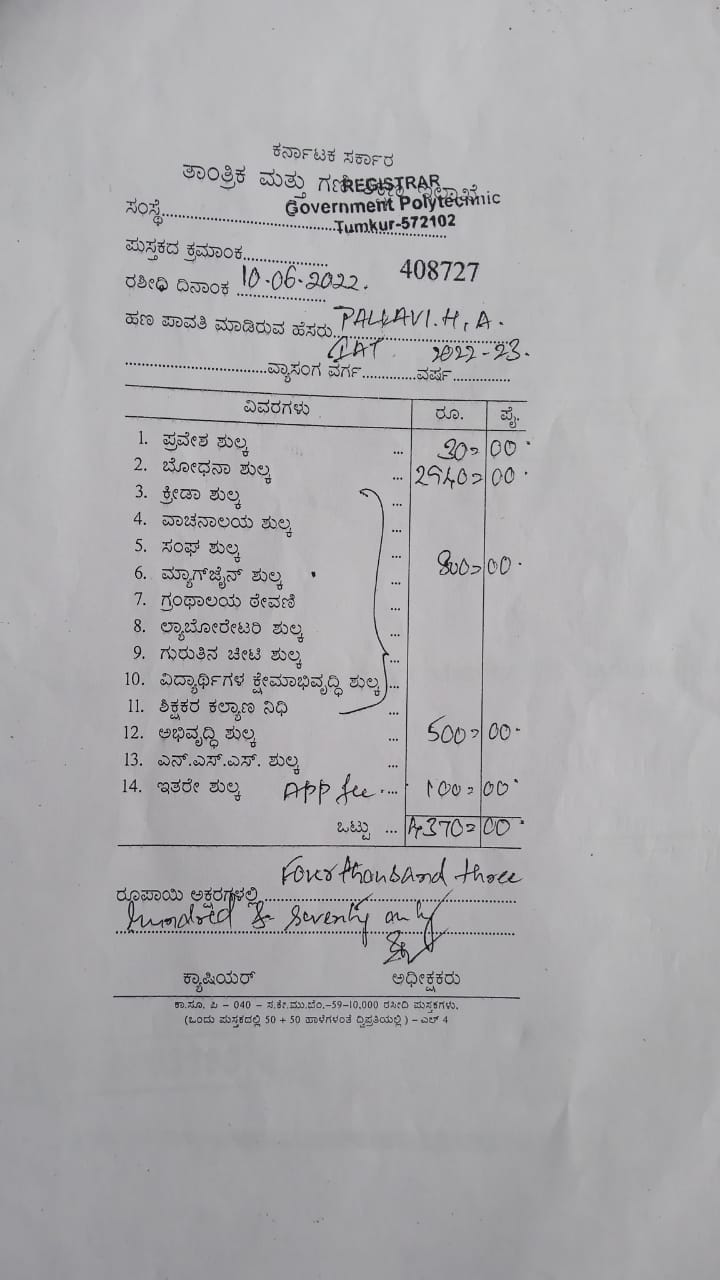 ಕರ್ನಾಟಕ ಸರ್ಕಾರ
ತಾಂತ್ರಿಕ ಮತ್ತು
REGISTRAR
Government Polytechnic
Tumkur-572102
ಸಂಸ್ಥೆ
ಪುಸ್ತಕದ ಕ್ರಮಾಂಕ 408727
ರಶೀಧಿ ದಿನಾಂಕ 10-06-2022.
ಹಣ ಪಾವತಿ ಮಾಡಿರುವ ಹೆಸರು PALLAVI.H.A.
2022-23.
ವ್ಯಾಸಂಗ ವರ್ಗ ವರ್ಷ
ವಿವರಗಳು ರೂ. ಪೈ.
1. ಪ್ರವೇಶ ಶುಲ್ಕ ... 30=00
2. ಬೋಧನಾ ಶುಲ್ಕ ... 2940=00
3. ಕ್ರೀಡಾ ಶುಲ್ಕ ...
4. ವಾಚನಾಲಯ ಶುಲ್ಕ ...
5. ಸಂಘ ಶುಲ್ಕ ...
6. ಮ್ಯಾಗ್‌ಜೈನ್ ಶುಲ್ಕ ... 800=00
7. ಗ್ರಂಥಾಲಯ ಠೇವಣಿ ...
8. ಲ್ಯಾಬೋರೇಟರಿ ಶುಲ್ಕ ...
9. ಗುರುತಿನ ಚೀಟಿ ಶುಲ್ಕ ...
10. ವಿದ್ಯಾರ್ಥಿಗಳ ಕ್ಷೇಮಾಭಿವೃದ್ಧಿ ಶುಲ್ಕ ...
11. ಶಿಕ್ಷಕರ ಕಲ್ಯಾಣ ನಿಧಿ ...
12. ಅಭಿವೃದ್ಧಿ ಶುಲ್ಕ ... 500=00
13. ಎನ್.ಎಸ್.ಎಸ್. ಶುಲ್ಕ ...
14. ಇತರೇ ಶುಲ್ಕ APP fee ... 100=00
ಒಟ್ಟು ... 4370=00
Four thousand three
ರೂಪಾಯಿ ಅಕ್ಷರಗಳಲ್ಲಿ
hundred & seventy only
ಕ್ಯಾಷಿಯರ್ ಅಧೀಕ್ಷಕರು
ಕಾ.ಸೂ. ಪಿ – 040 – ಸ.ಕೇ.ಮು.ಬೆಂ.–59–10,000 ರಸೀದಿ ಪುಸ್ತಕಗಳು.
(ಒಂದು ಪುಸ್ತಕದಲ್ಲಿ 50 + 50 ಹಾಳೆಗಳಂತೆ ದ್ವಿಪ್ರತಿಯಲ್ಲಿ) – ಎಲ್ 4